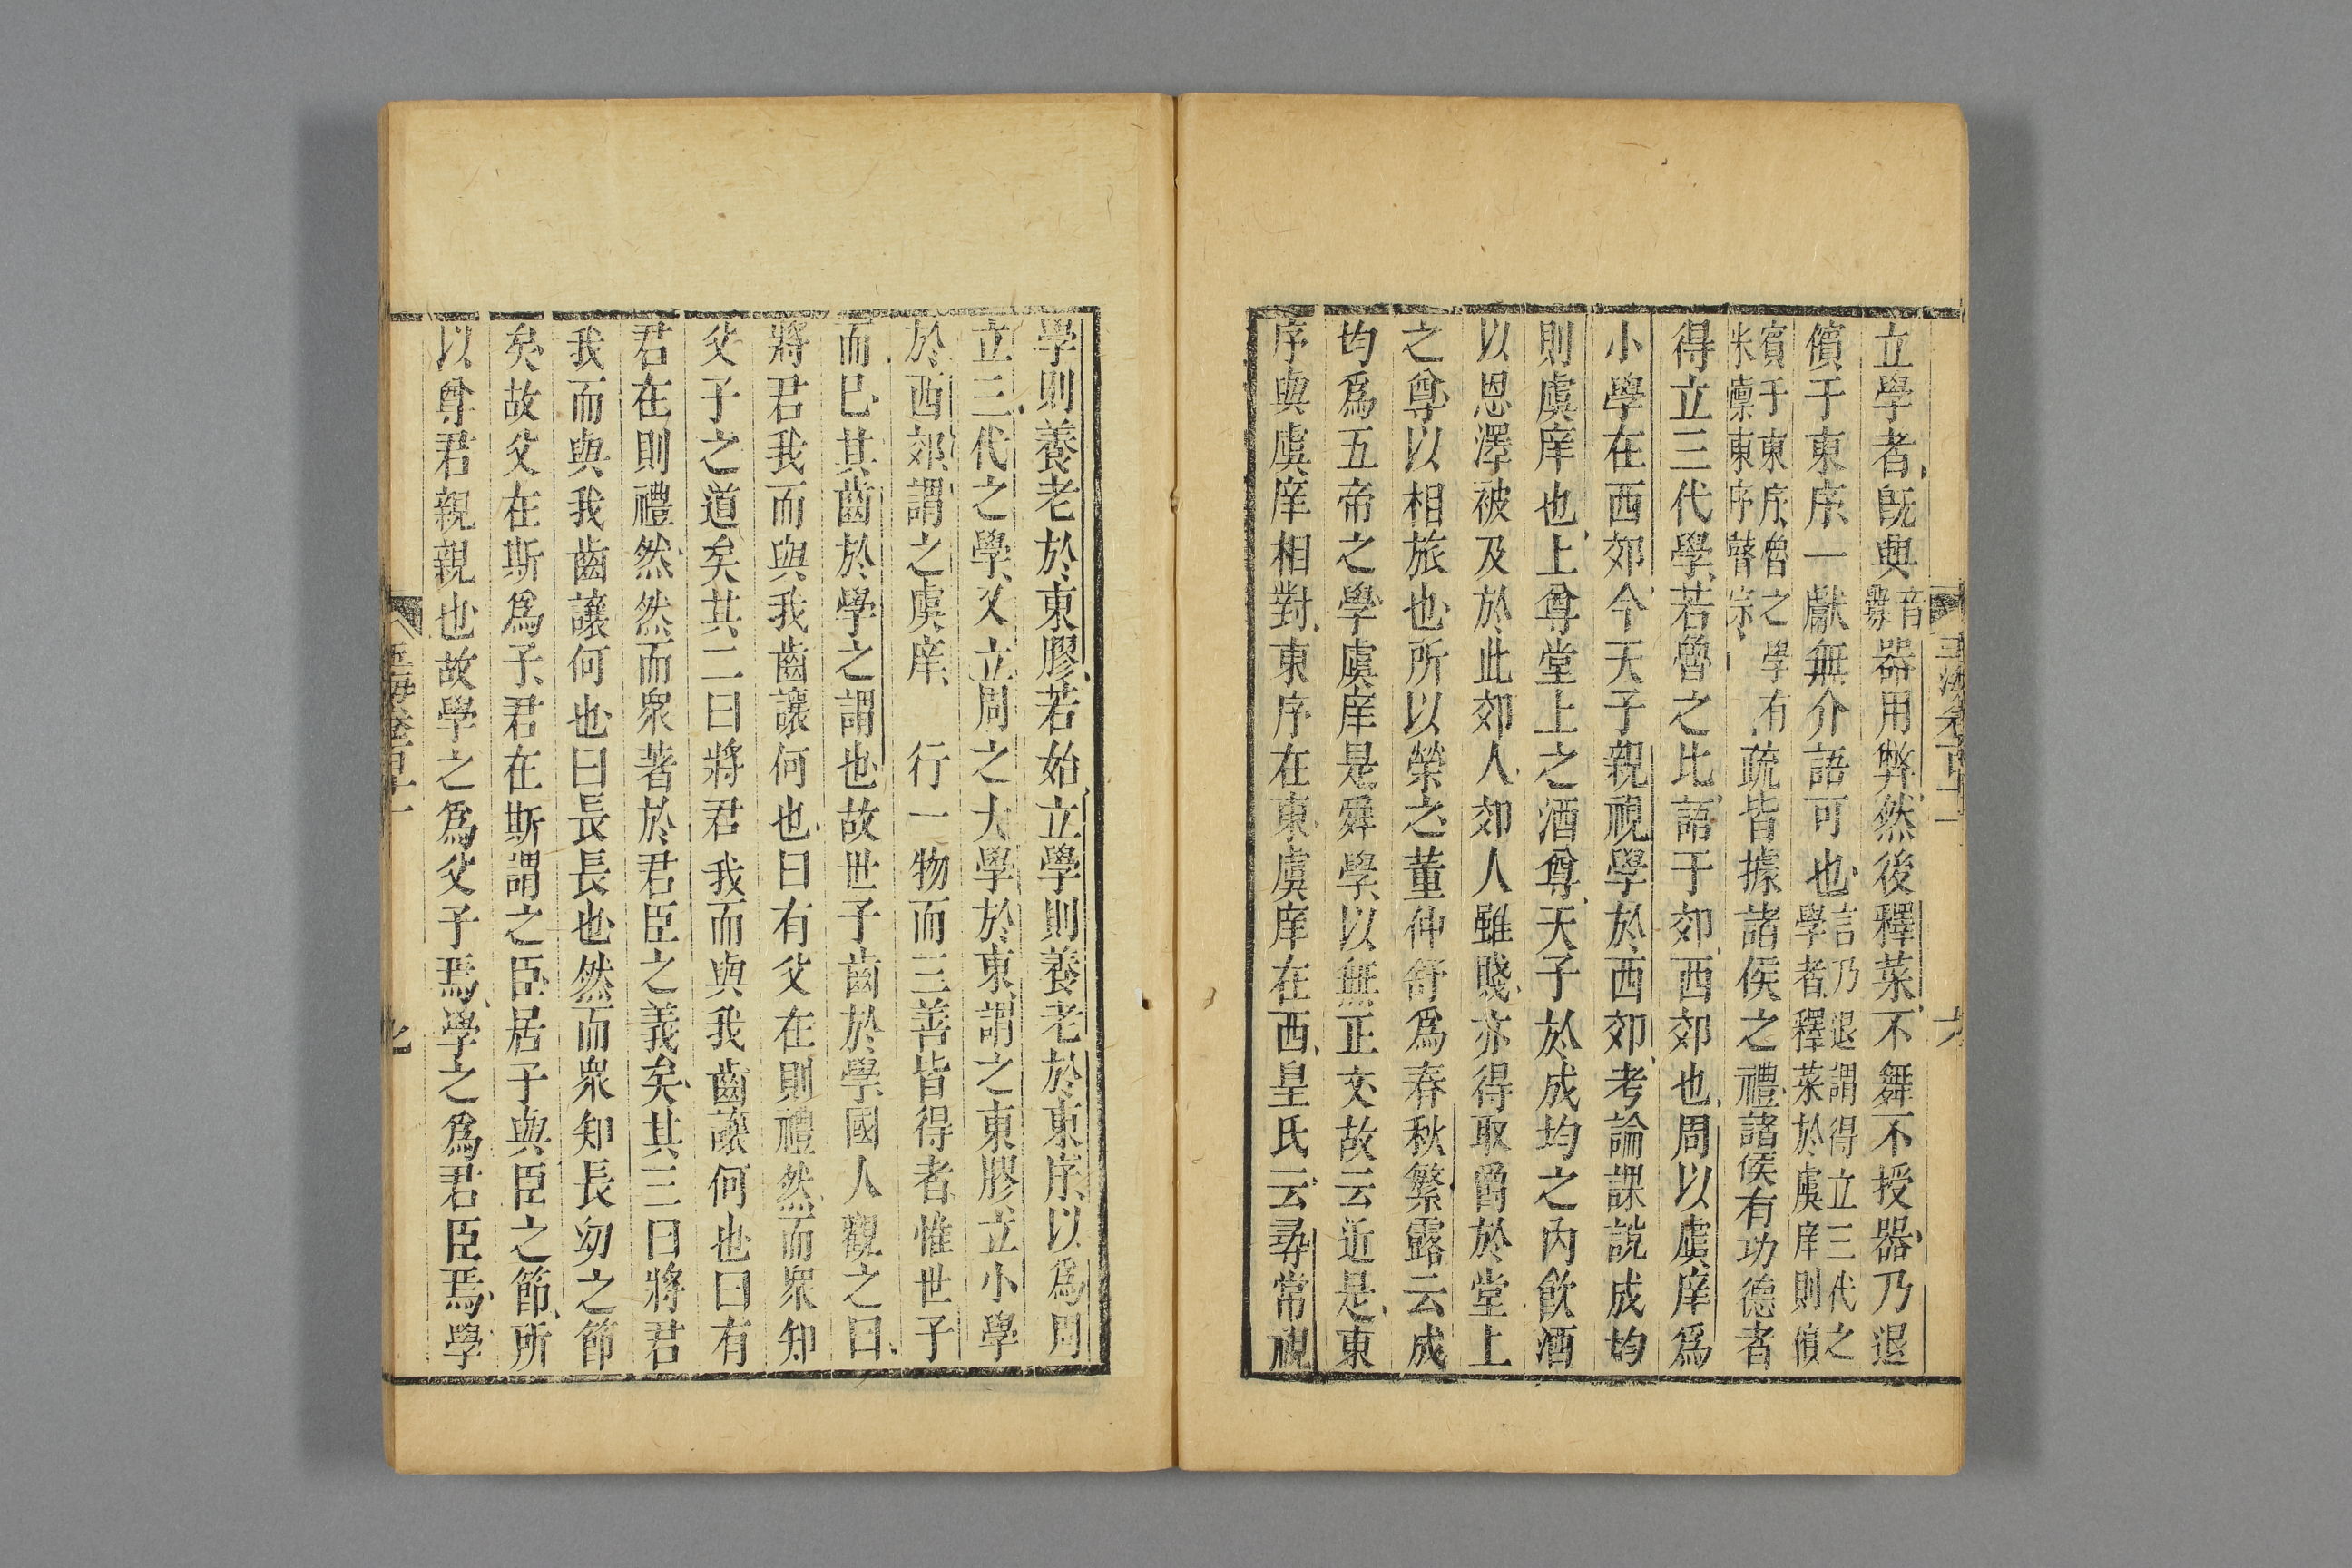 玉海卷百十一 六
立學者旣與音釁器用幣然後釋菜不舞不授器乃退
儐于東序一獻無介語可也言乃退謂得立三代之學者釋菜於虞庠則儐
賓于東序魯之學有米廩東序瞽宗疏皆據諸侯之禮諸侯有功德者
得立三代學若魯之比語于郊西郊也周以虞庠爲
小學在西郊今天子親視學於西郊考論課說成均
則虞庠也上尊堂上之酒尊天子於成均之內飮酒
以恩澤被及於此郊人郊人雖賤亦得取爵於堂上
之尊以相旅也所以榮之董仲舒爲春秋繁露云成
均爲五帝之學虞庠是舜學以無正文故云近是東
序與虞庠相對東序在東虞庠在西皇氏云尋常視
學則養老於東膠若始立學則養老於東序以爲周
立三代之學又立周之大學於東謂之東膠立小學
於西郊謂之虞庠 行一物而三善皆得者惟世子
而已其齒於學之謂也故世子齒於學國人觀之曰
將君我而與我齒讓何也曰有父在則禮然而眾知
父子之道矣其二曰將君我而與我齒讓何也曰有
君在則禮然然而眾著於君臣之義矣其三曰將君
我而與我齒讓何也曰長長也然而眾知長幼之節
矣故父在斯爲子君在斯謂之臣居子與臣之節所
以尊君親親也故學之爲父子焉學之爲君臣焉學
玉海卷百十一 七